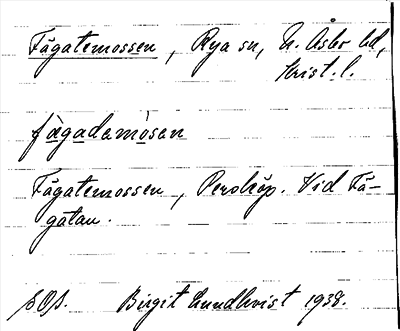 Fågatemossen, Rya sn, N. Åsbo hd,
Krist. l.
fàgadamòsan
Fågatemossen, Perstorp. Vid Få-
gatan.
Birgit Lundkvist 1938.